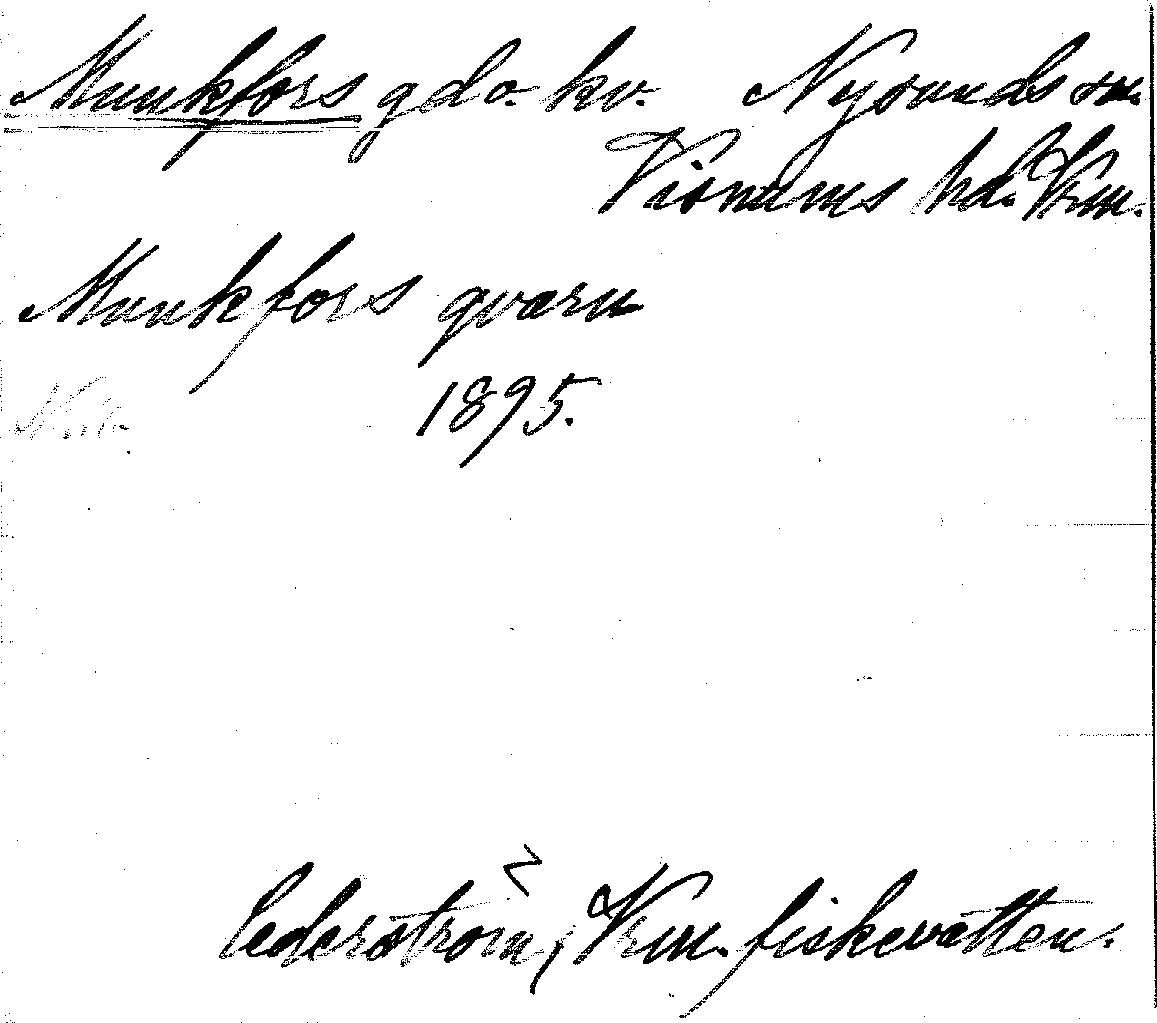 Munkfors gd o. kv. Nysunds sn.
Visnums hd. Vrm.
Munkfors qvarn
1895.
Cederström, Vrm. fiskevatten.